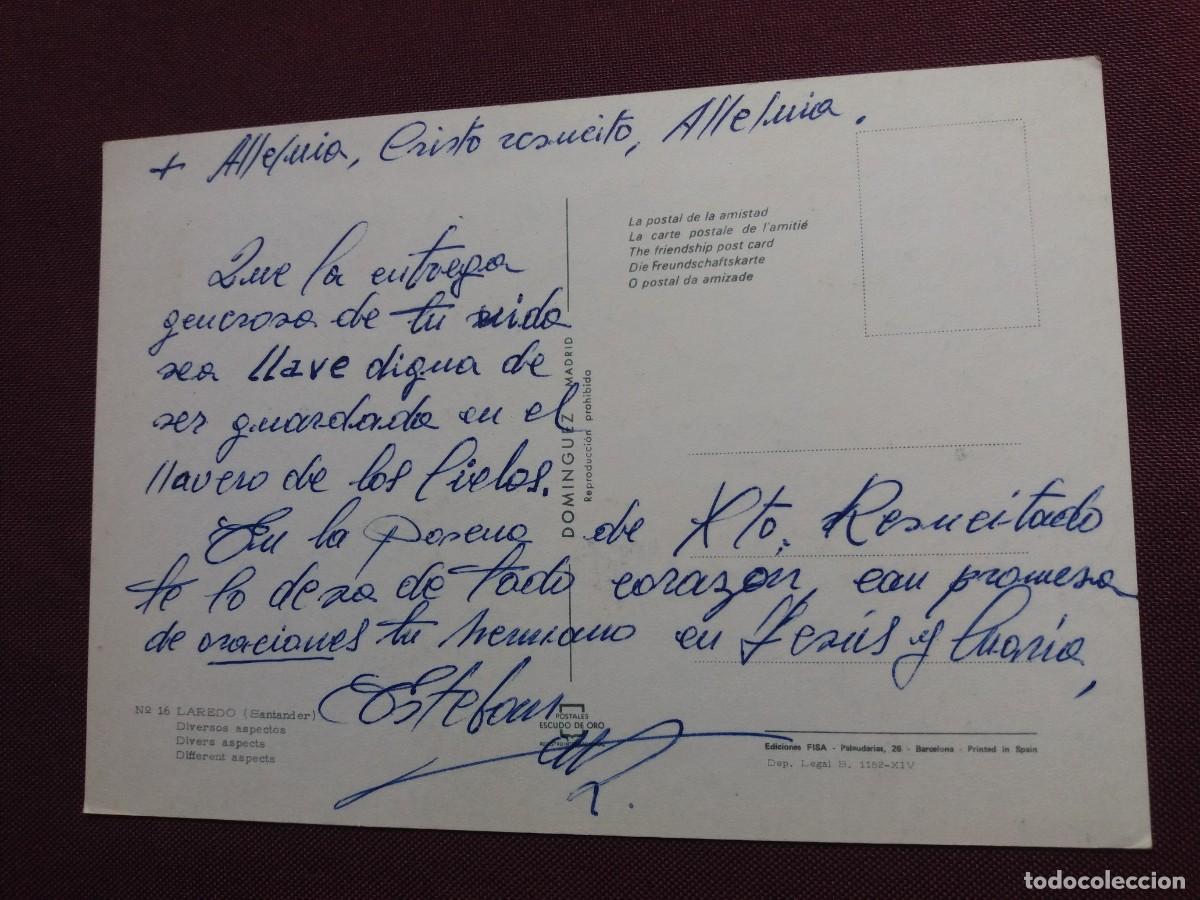 + Alleluia, Cristo resucito, Alleluia.
Que la entrega
generosa de tu vida
sea llave digna de
ser guardada en el
llavero de los Cielos.
En la Pascua de Xto. Resucitado
te lo desea de todo corazón, con promesa
de oraciones tu hermano en Jesús y María,
Esteban
La postal de la amistad
La carte postale de l'amitié
The friendship post card
Die Freundschaftskarte
O postal da amizade
DOMINGUEZ MADRID
Reproducción prohibida
Nº 16 LAREDO (Santander)
Diversos aspectos
Divers aspects
Different aspects
POSTALES
ESCUDO DE ORO
Ediciones FISA - Palaudarias, 26 - Barcelona - Printed in Spain
Dep. Legal B. 1182-XIV
todocoleccion